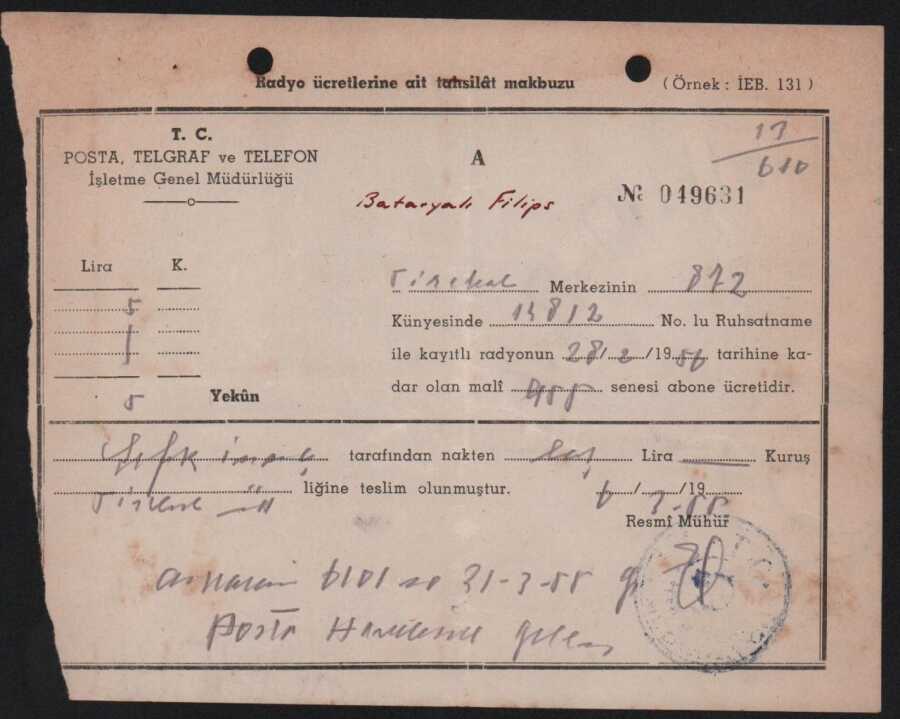 Radyo ücretlerine ait tahsilât makbuzu
(Örnek : İEB. 131)
T. C.
POSTA, TELGRAF ve TELEFON
İşletme Genel Müdürlüğü
A
17
610
Bataryalı Filips
№ 049631
Lira K.
5
5 Yekûn
Merkezinin 872
Künyesinde 14812 No. lu Ruhsatname
ile kayıtlı radyonun 28/2/1956 tarihine ka-
dar olan malî 955 senesi abone ücretidir.
tarafından nakten beş Lira Kuruş
liğine teslim olunmuştur. 6/3-55/19
Resmî Mühür
6101 31-3-55
Posta Havalesile gelen
T.C.